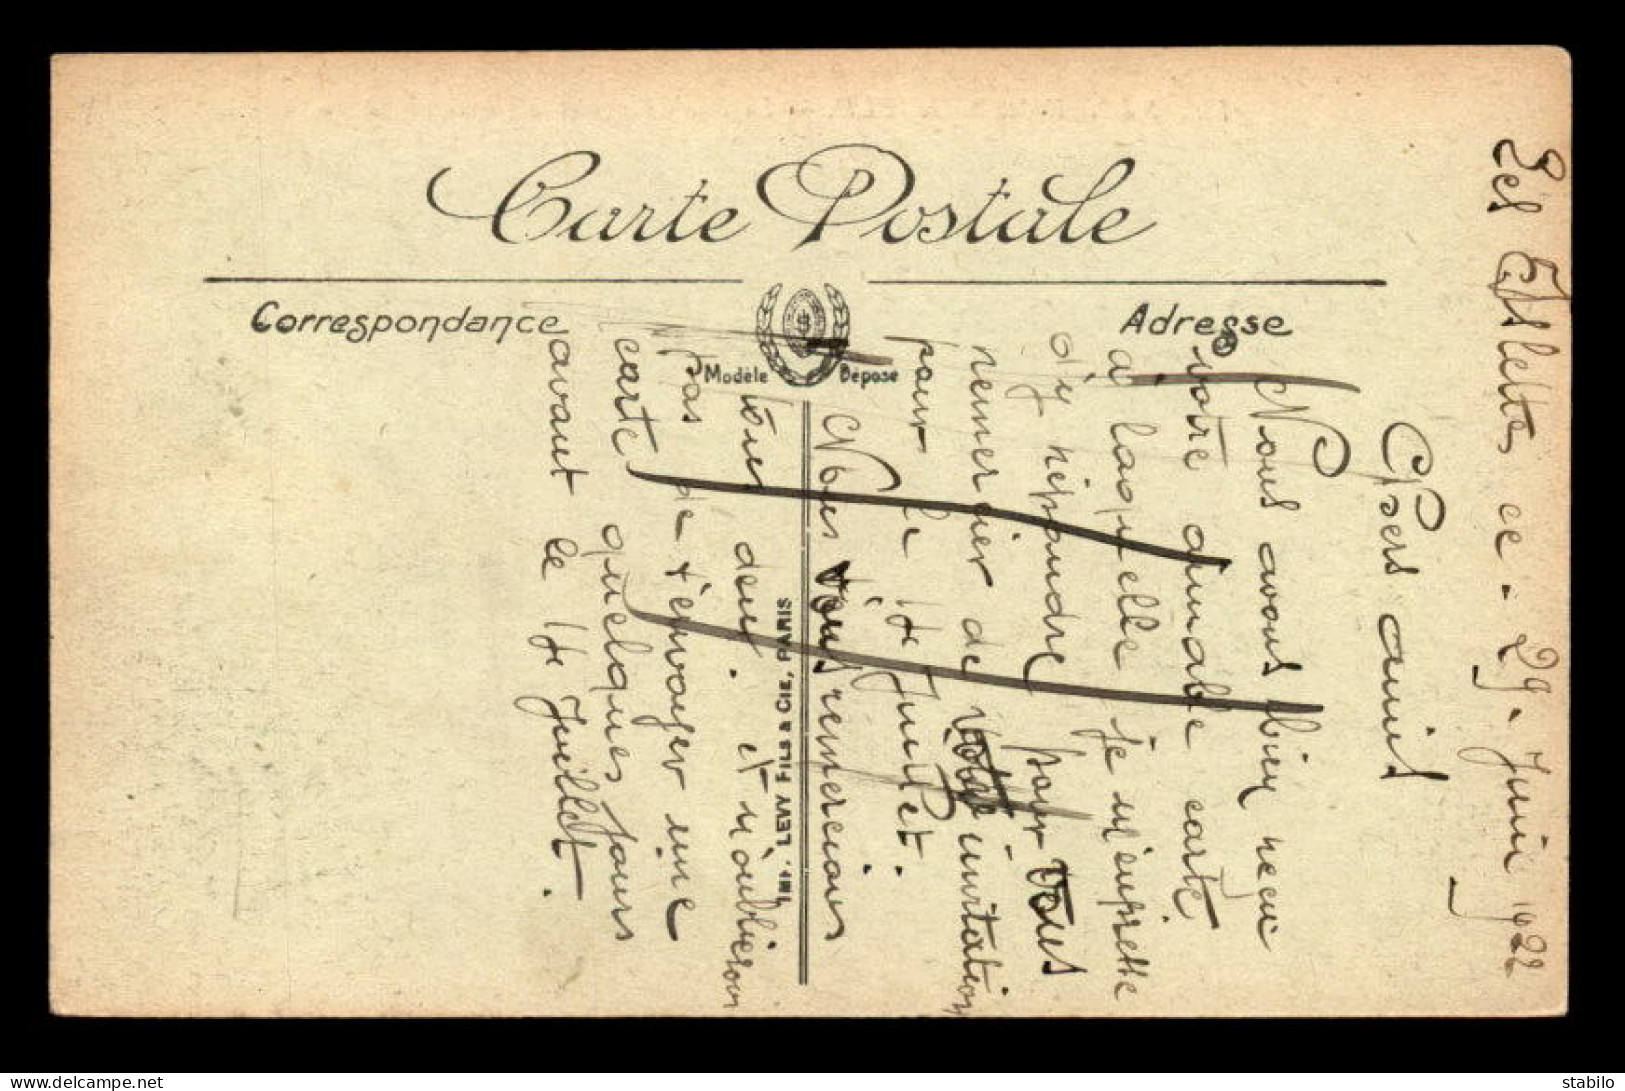 Carte Postale
Correspondance
Adresse
Modèle Déposé
IMP. LEVY FILS & CIE, PARIS
Les Islettes ce - 29 - Juin 1922
Chers amis
Nous avons bien reçu
votre aimable carte
à laquelle je m'empresse
d'y répondre pour vous
remercier de votre invitation
pour le 14 Juillet.
Nous vous remercions
tous deux. et n'oublierons
pas de t'envoyer une
carte quelques jours
avant le 14 Juillet.
delcampe.net
stabilo